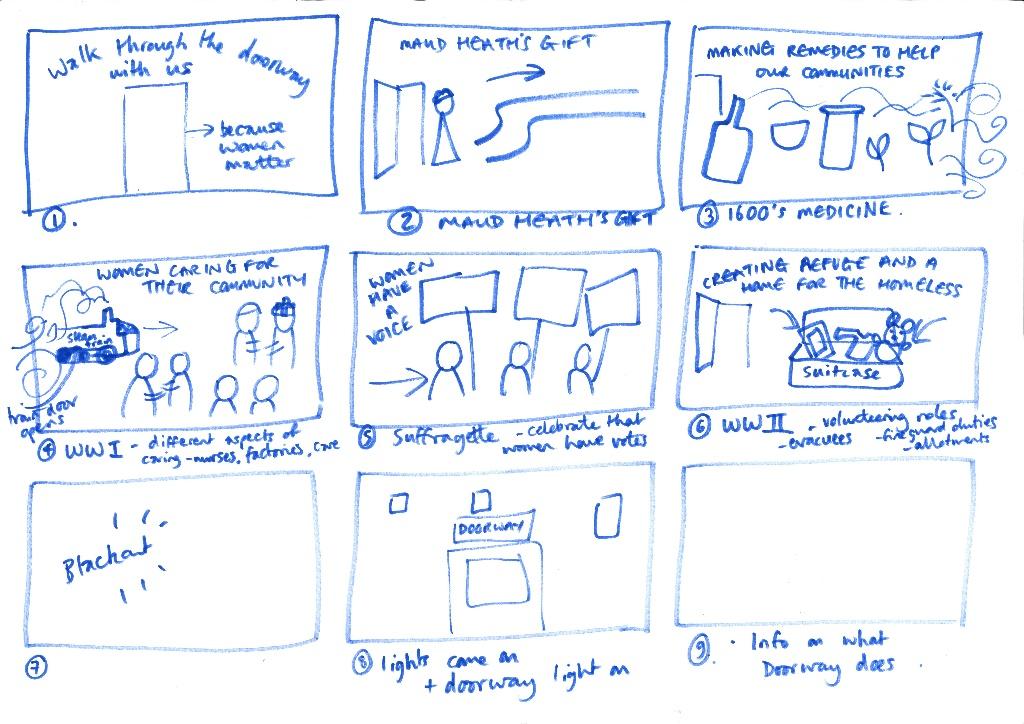 Walk through the doorway
with us
because
women
matter
①.
MAUD HEATH'S GIFT
② MAUD HEATH'S GIFT
MAKING REMEDIES TO HELP
OUR COMMUNITIES
③ 1600's MEDICINE.
WOMEN CARING FOR
THEIR COMMUNITY
steam
train
train door
opens
④ WWI - different aspects of
caring - nurses, factories, care
WOMEN
HAVE
A
VOICE
⑤ Suffragette - celebrate that
women have votes
CREATING REFUGE AND A
HOME FOR THE HOMELESS
Suitcase
⑥ WWII - volunteering roles
- evacuees - fireguard duties
- allotments
Blackout
⑦
DOORWAY
⑧ lights come on
+ doorway light on
⑨ . Info on what
Doorway does .